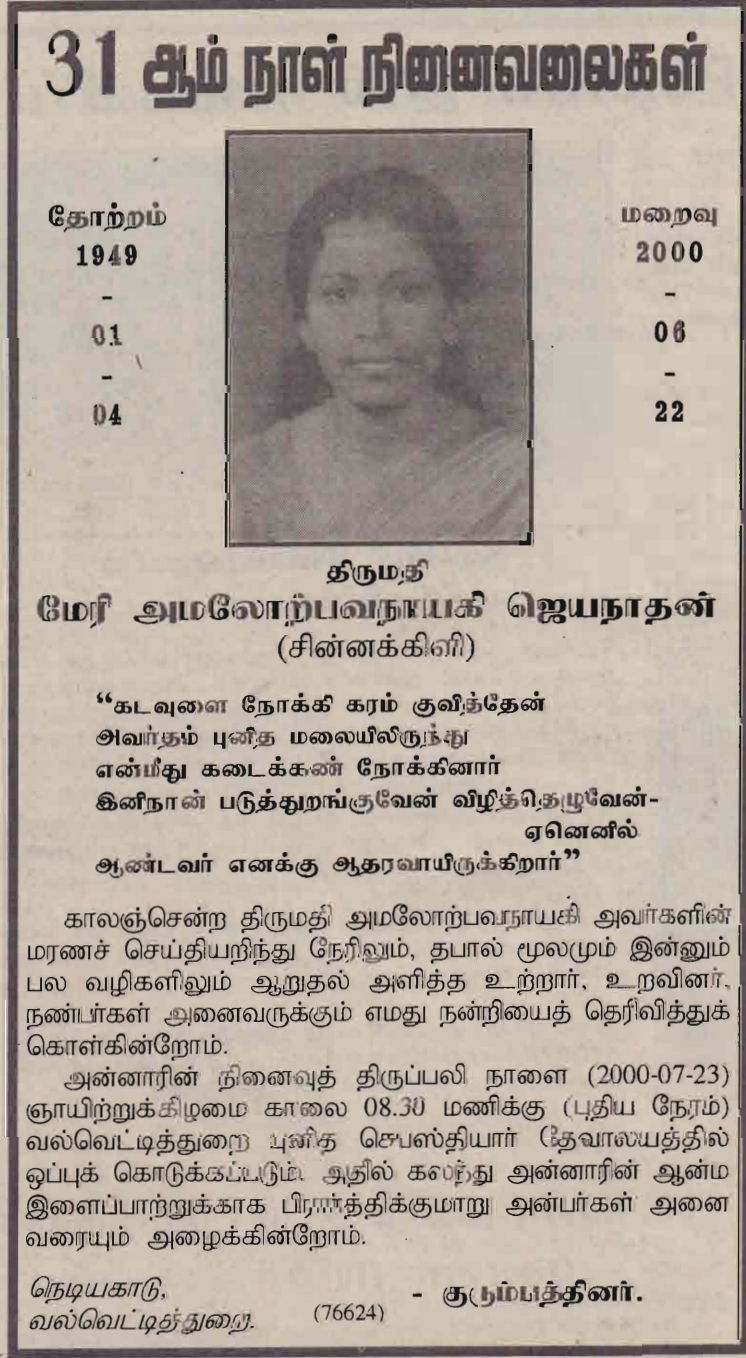 31 ஆம் நாள் நினைவலைகள்
தோற்றம்
1949
-
01
-
04
மறைவு
2000
-
06
-
22
திருமதி
மேரி அமலோற்பவநாயகி ஜெயநாதன்
(சின்னக்கிளி)
“கடவுளை நோக்கி கரம் குவித்தேன்
அவர்தம் புனித மலையிலிருந்து
என்மீது கடைக்கண் நோக்கினார்
இனிநான் படுத்துறங்குவேன் விழித்தெழுவேன்-
ஏனெனில்
ஆண்டவர் எனக்கு ஆதரவாயிருக்கிறார்”
காலஞ்சென்ற திருமதி அமலோற்பவநாயகி அவர்களின்
மரணச் செய்தியறிந்து நேரிலும், தபால் மூலமும் இன்னும்
பல வழிகளிலும் ஆறுதல் அளித்த உற்றார், உறவினர்,
நண்பர்கள் அனைவருக்கும் எமது நன்றியைத் தெரிவித்துக்
கொள்கின்றோம்.
அன்னாரின் நினைவுத் திருப்பலி நாளை (2000-07-23)
ஞாயிற்றுக்கிழமை காலை 08.30 மணிக்கு (புதிய நேரம்)
வல்வெட்டித்துறை புனித செபஸ்தியார் தேவாலயத்தில்
ஒப்புக் கொடுக்கப்படும். அதில் கலந்து அன்னாரின் ஆன்ம
இளைப்பாற்றுக்காக பிரார்த்திக்குமாறு அன்பர்கள் அனை
வரையும் அழைக்கின்றோம்.
நெடியகாடு,
வல்வெட்டித்துறை.
(76624)
- குடும்பத்தினர்.